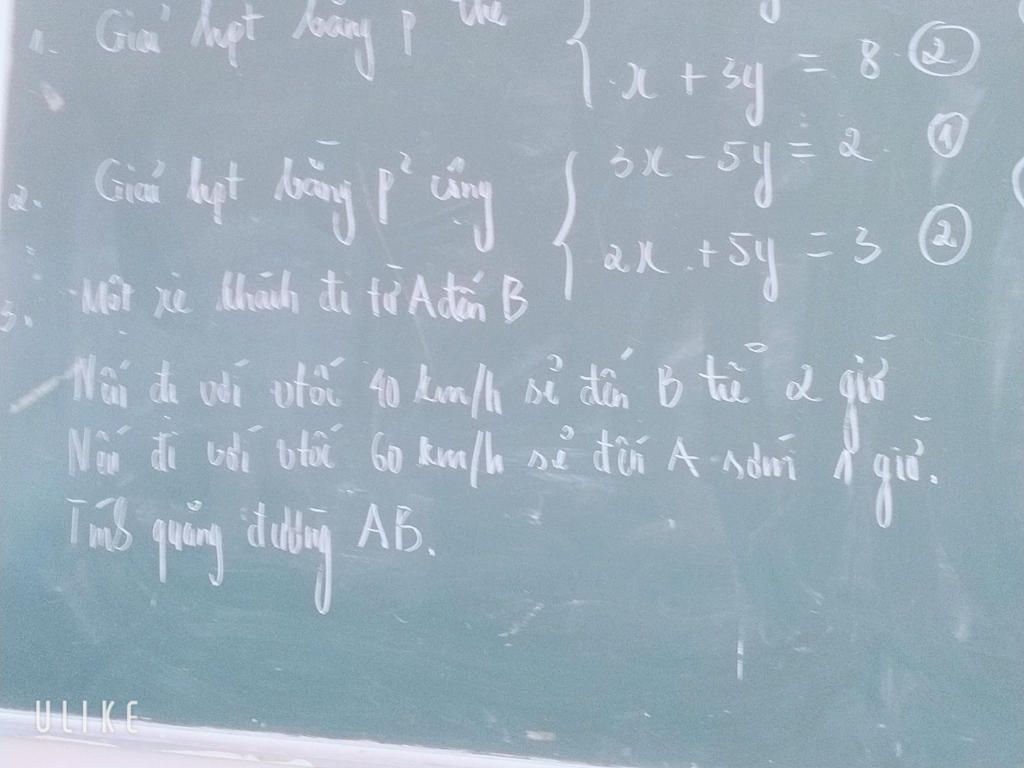 1. Giải hpt bằng p² thế
x + 3y = 8 ②
3x - 5y = 2 ①
2. Giải hpt bằng p² cộng
2x + 5y = 3 ②
3. Một xe khách đi từ A đến B
Nếu đi với vtốc 40 km/h sẽ đến B trễ 2 giờ
Nếu đi với vtốc 60 km/h sẽ đến A sớm 1 giờ.
Tính quãng đường AB.
ULIKE